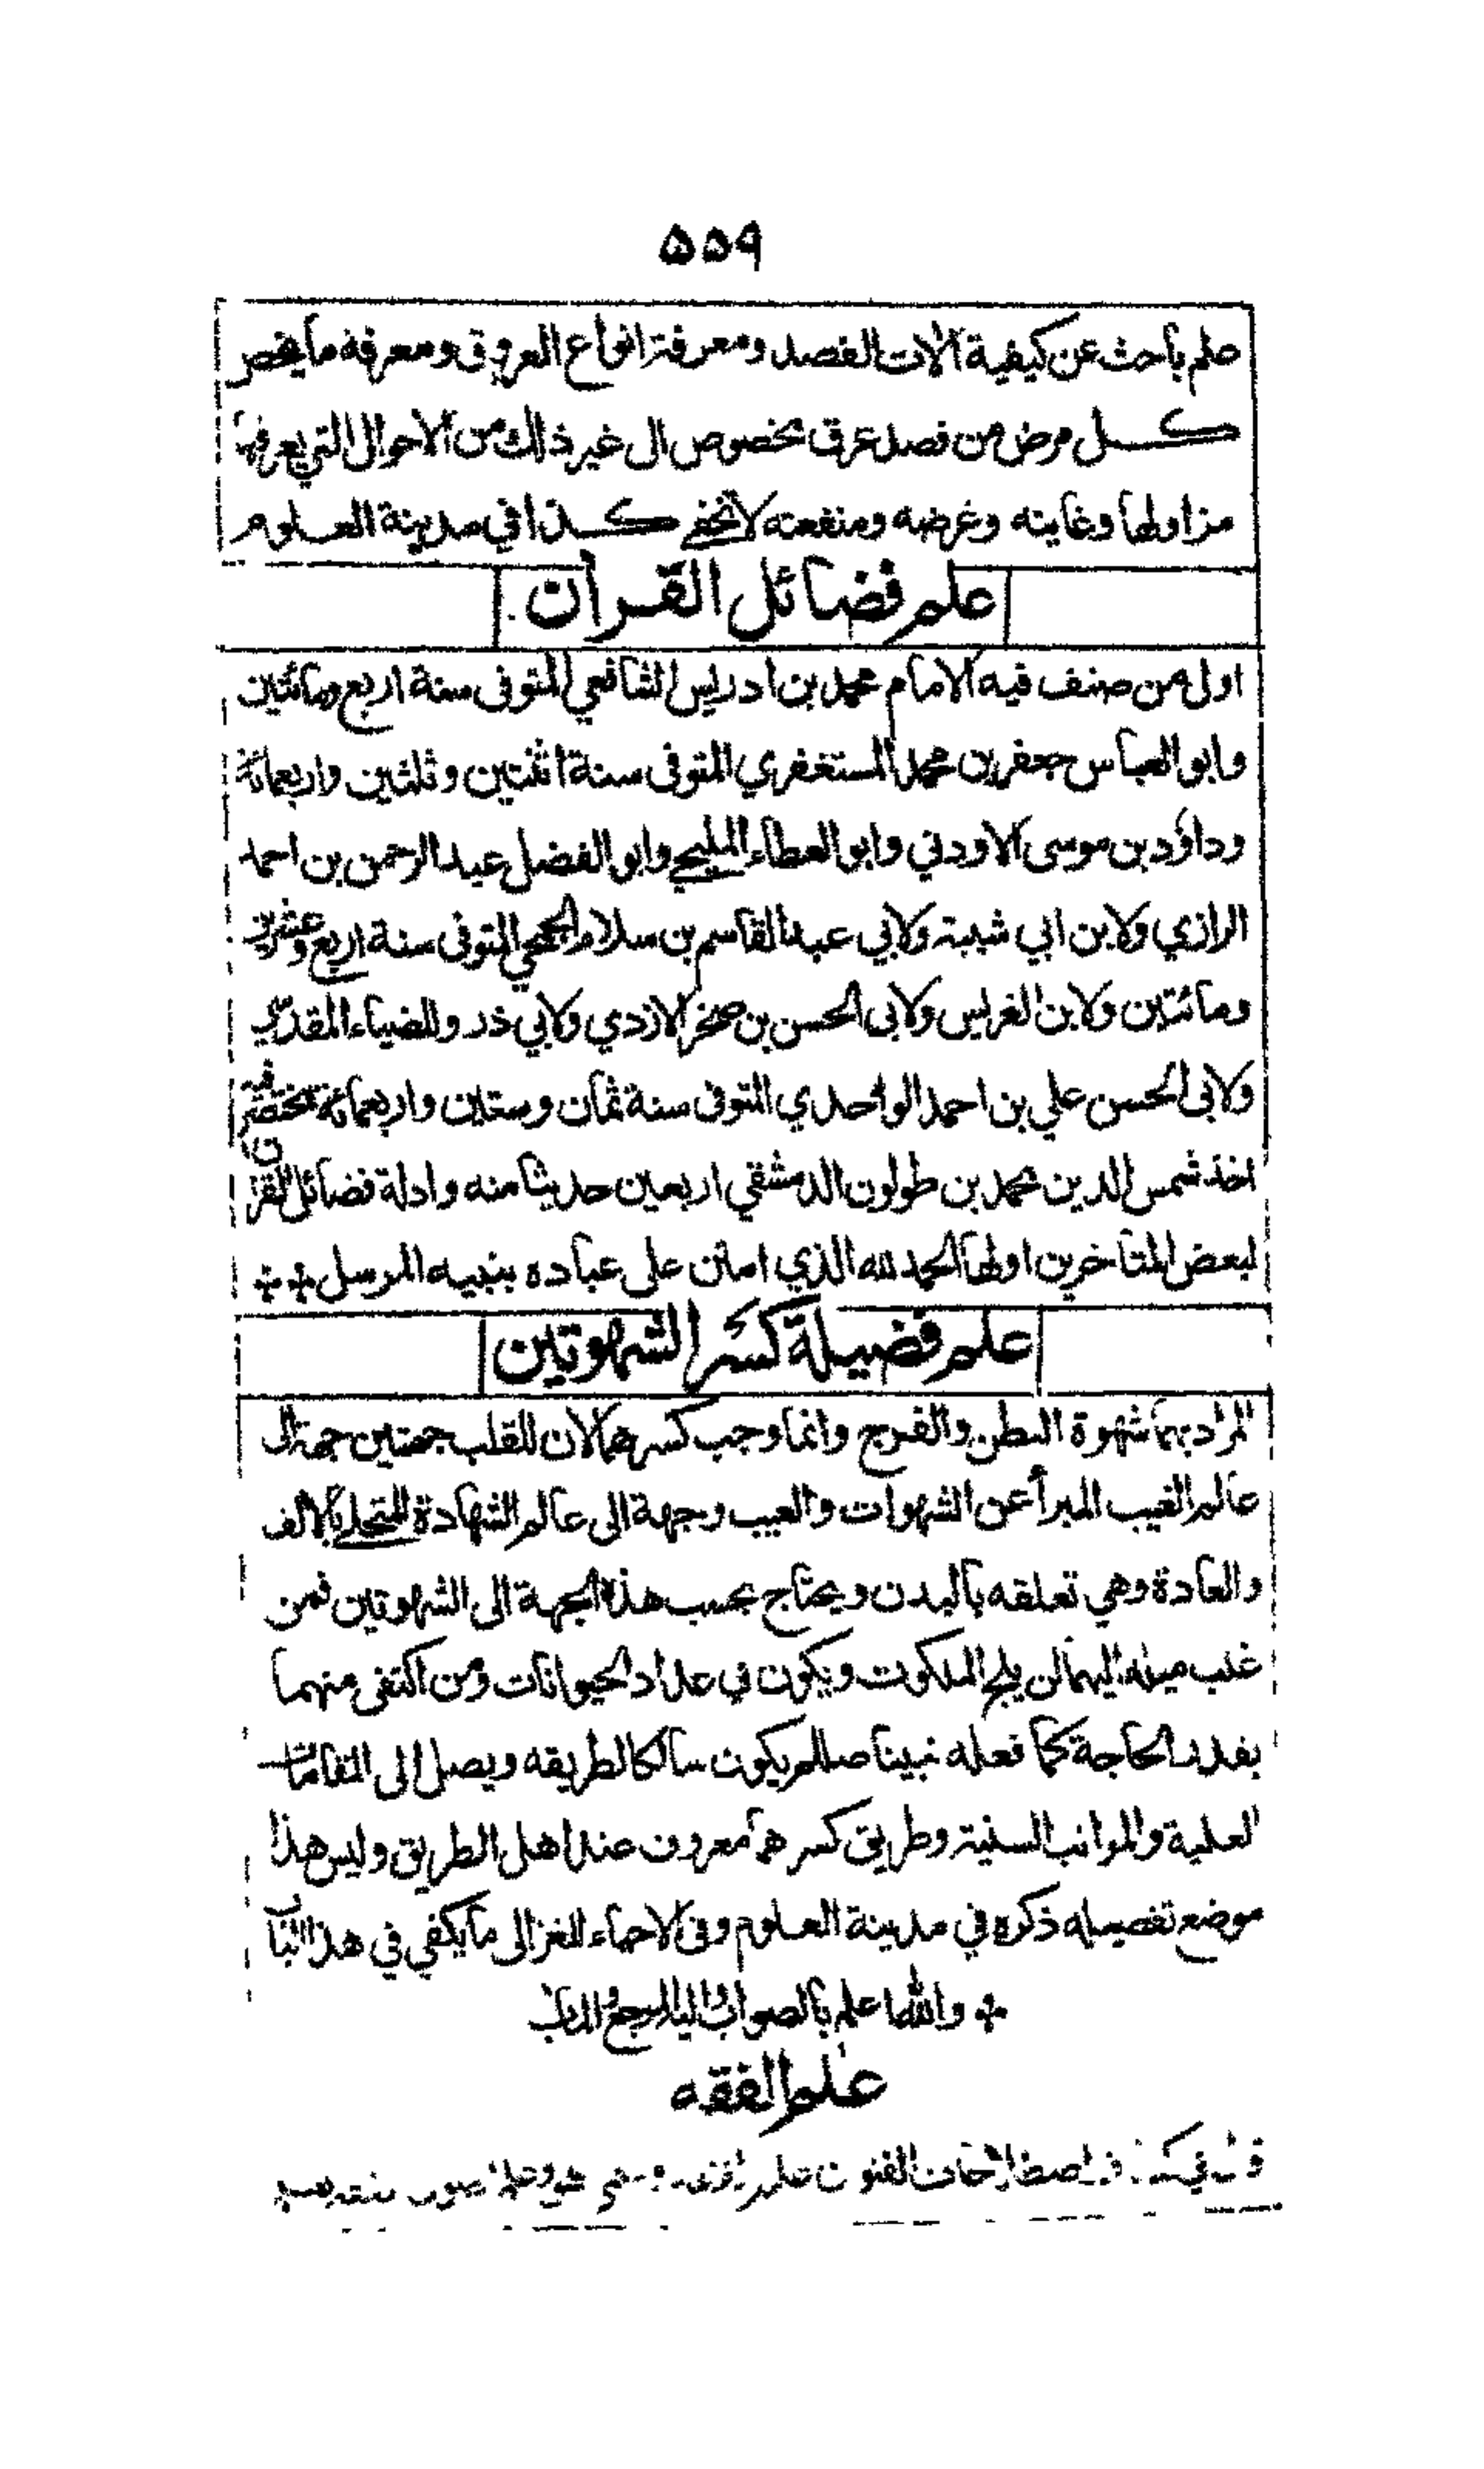 ٥٥٩
علم باحث عن كيفية آلات الفصد ومعرفة انواع العروق ومعرفة ما يخص
كل مرض من فصد عرق مخصوص الى غير ذالك من الاحوال التي يعرفها
مزاولها وغايته وغرضه ومنفعته لا تخفى كذا في مدينة العلوم
علم فضائل القرآن
اول من صنف فيه الامام محمد بن ادريس الشافعي المتوفى سنة اربع ومائتين
وابو العباس جعفر بن محمد المستغفري المتوفى سنة اثنتين وثلثين واربعمائة
وداؤد بن موسى الاودني وابو العطاء المليحي وابو الفضل عبد الرحمن بن احمد
الرازي ولابن ابي شيبة ولابي عبد القاسم بن سلام الجمحي المتوفى سنة اربع وعشرين
ومائتين ولابن الغريس ولابى الحسن بن صخر الازدي ولابي ذر وللضياء المقدسي
ولابى الحسن علي بن احمد الواحدي المتوفى سنة ثمان وستين واربعمائة مختصر فيه
اخذ شمس الدين محمد بن طولون الدمشقي اربعين حديثا منه وادلة فضائل القران
لبعض المتأخرين اولها الحمد لله الذي امتن على عباده بنبيه المرسل
علم فضيلة كسر الشهوتين
المراد بهما شهوة البطن والفرج وانما وجب كسرهما لان للقلب جهتين جهة الى
عالم الغيب المبرأ عن الشهوات والعيب وجهة الى عالم الشهادة المتحلي بالالف
والعادة وهي تعلقه بالبدن ويحتاج بحسب هذه الجهة الى الشهوتين فمن
غلب ميله اليهما لن يلج الملكوت ويكون في عداد الحيوانات ومن اكتفى منهما
بقدر الحاجة كما فعله نبينا صللم يكون سالكا لطريقه ويصل الى المقامات
العلية والمراتب السنية وطريق كسرهما معروف عند اهل الطريق وليس هذا
موضع تفصيله ذكره في مدينة العلوم وفى الاحياء للغزالى ما يكفي في هذا الباب
والله اعلم بالصواب واليه المرجع والمآب
علم الفقه
قال في كشاف اصطلاحات الفنون علم الفقه